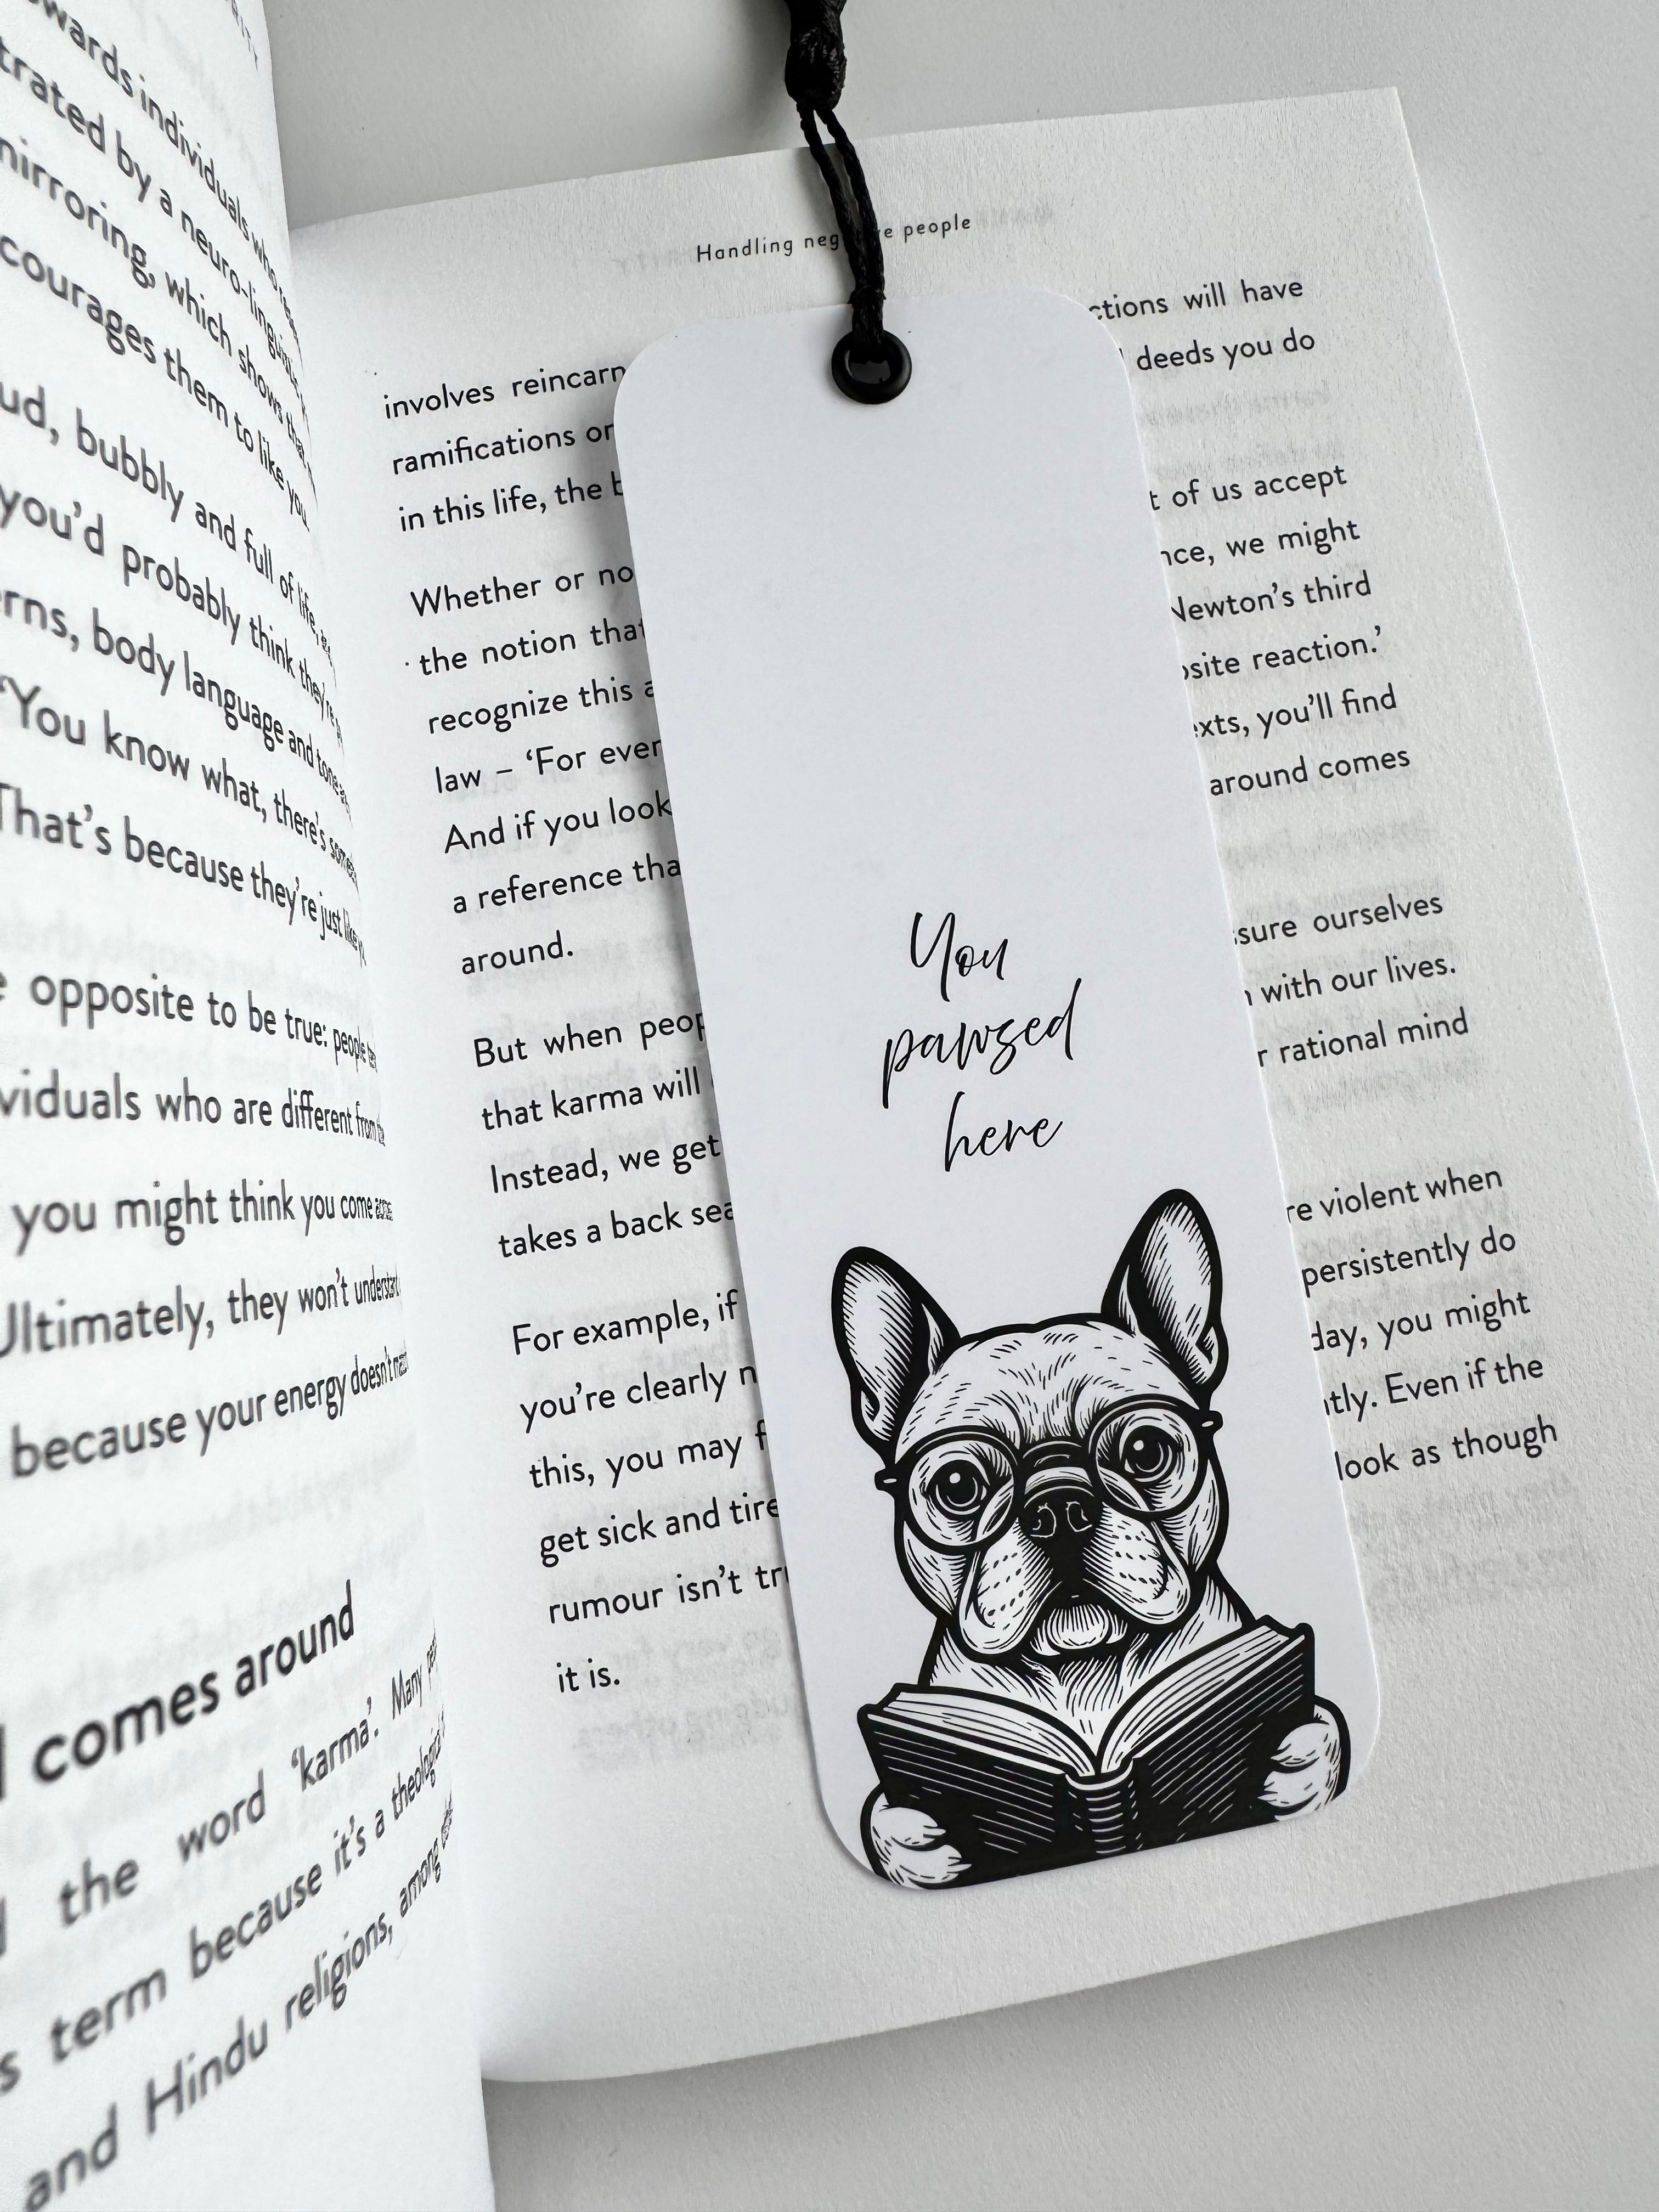 wards individuals who
trated by a neuro-linguistic
mirroring, which shows that
courages them to like you.
ud, bubbly and full of life,
you'd probably think they're
erns, body language and tone
'You know what, there's
That's because they're just like
opposite to be true: people
viduals who are different from
you might think you come
Ultimately, they won't
because your energy doesn't
comes around
the word 'karma'. Many
term because it's a
and Hindu religions, among
Handling neg e people
involves reincarn ctions will have
ramifications or deeds you do
in this life, the b
Whether or no t of us accept
the notion that nce, we might
recognize this a Newton's third
law – 'For ever site reaction.'
And if you look exts, you'll find
a reference tha around comes
around.
But when peop sure ourselves
that karma will with our lives.
Instead, we get r rational mind
takes a back sea
For example, if re violent when
you're clearly n persistently do
this, you may f day, you might
get sick and tire tly. Even if the
rumour isn't tr look as though
it is.
You
pawsed
here